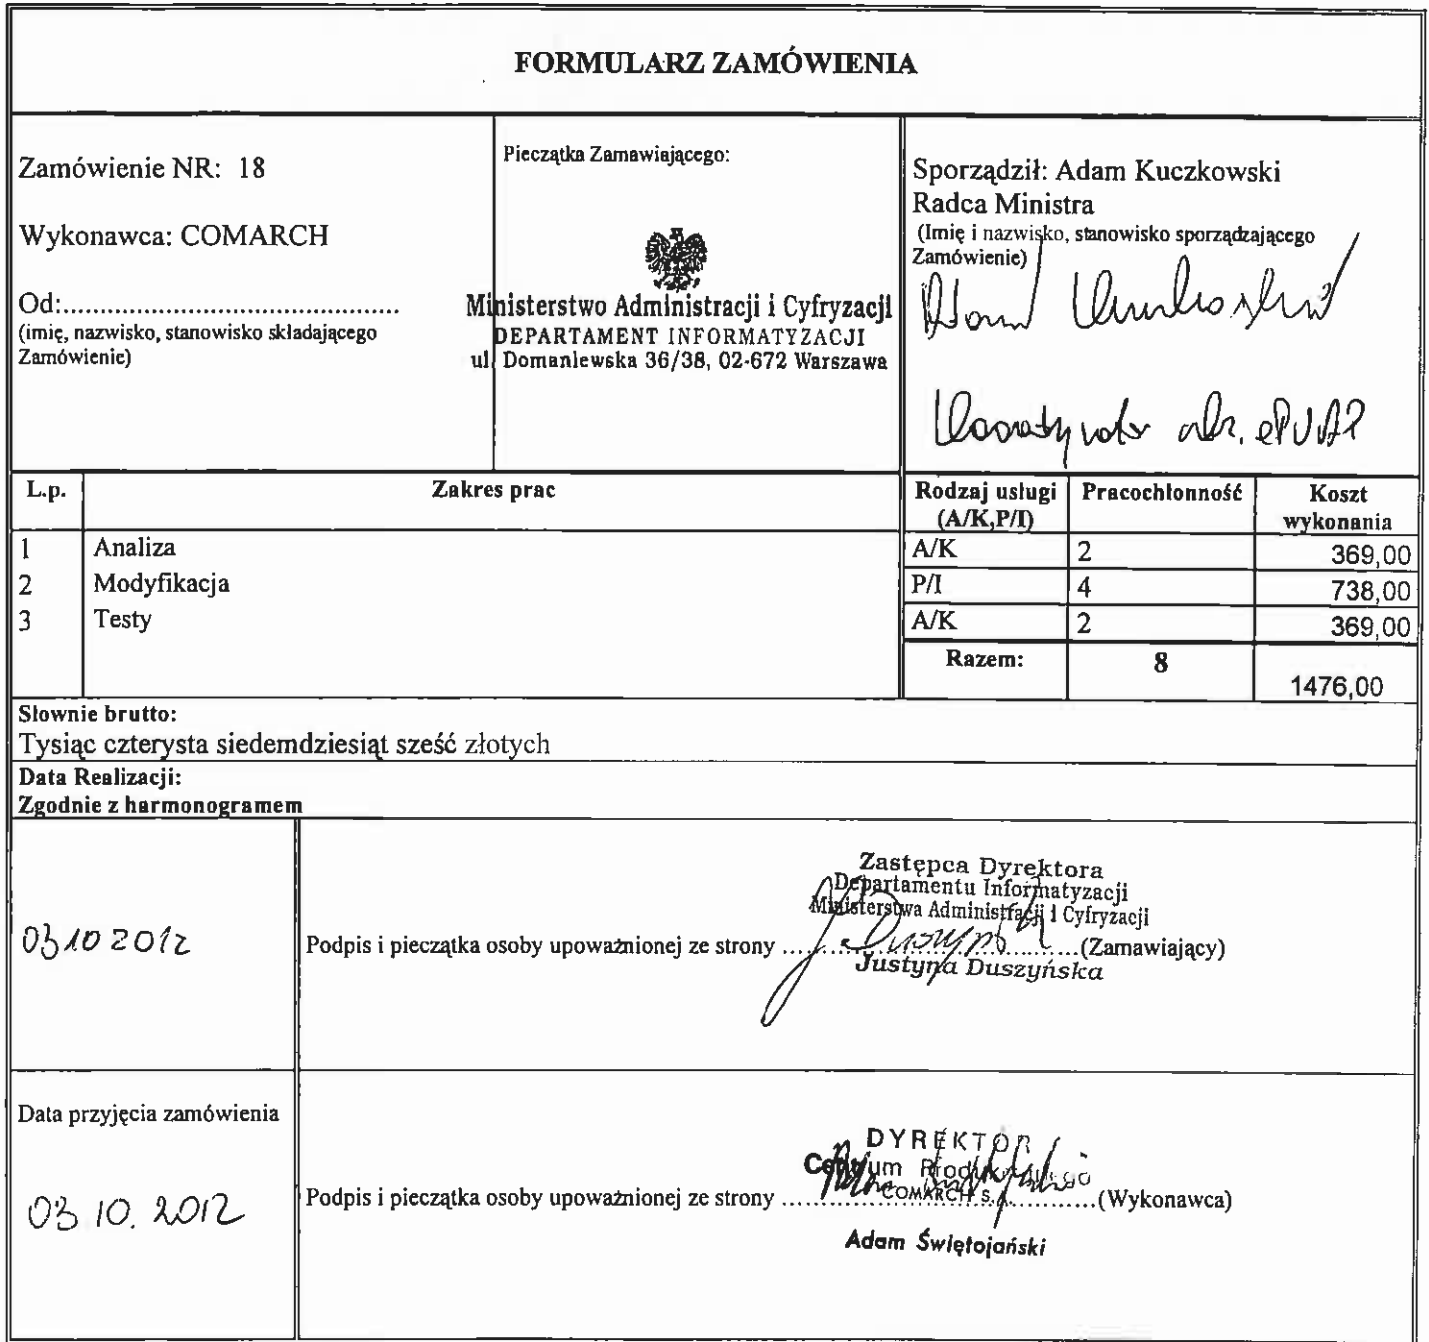 FORMULARZ ZAMÓWIENIA
Zamówienie NR: 18
Wykonawca: COMARCH
Od:..........................................
(imię, nazwisko, stanowisko składającego
Zamówienie)
Pieczątka Zamawiającego:
Ministerstwo Administracji i Cyfryzacji
DEPARTAMENT INFORMATYZACJI
ul. Domaniewska 36/38, 02-672 Warszawa
Sporządził: Adam Kuczkowski
Radca Ministra
(Imię i nazwisko, stanowisko sporządzającego
Zamówienie)
Adam
ePUAP
L.p. Zakres prac Rodzaj usługi Pracochłonność Koszt
(A/K,P/I) wykonania
1 Analiza A/K 2 369,00
2 Modyfikacja P/I 4 738,00
3 Testy A/K 2 369,00
Razem: 8 1476,00
Słownie brutto:
Tysiąc czterysta siedemdziesiąt sześć złotych
Data Realizacji:
Zgodnie z harmonogramem
Zastępca Dyrektora
Departamentu Informatyzacji
Ministerstwa Administracji i Cyfryzacji
03 10 2012
Podpis i pieczątka osoby upoważnionej ze strony ..............................(Zamawiający)
Justyna Duszyńska
Data przyjęcia zamówienia
DYREKTOR
Centrum
COMARCH S.A.
03.10.2012
Podpis i pieczątka osoby upoważnionej ze strony ..............................(Wykonawca)
Adam Świętojański